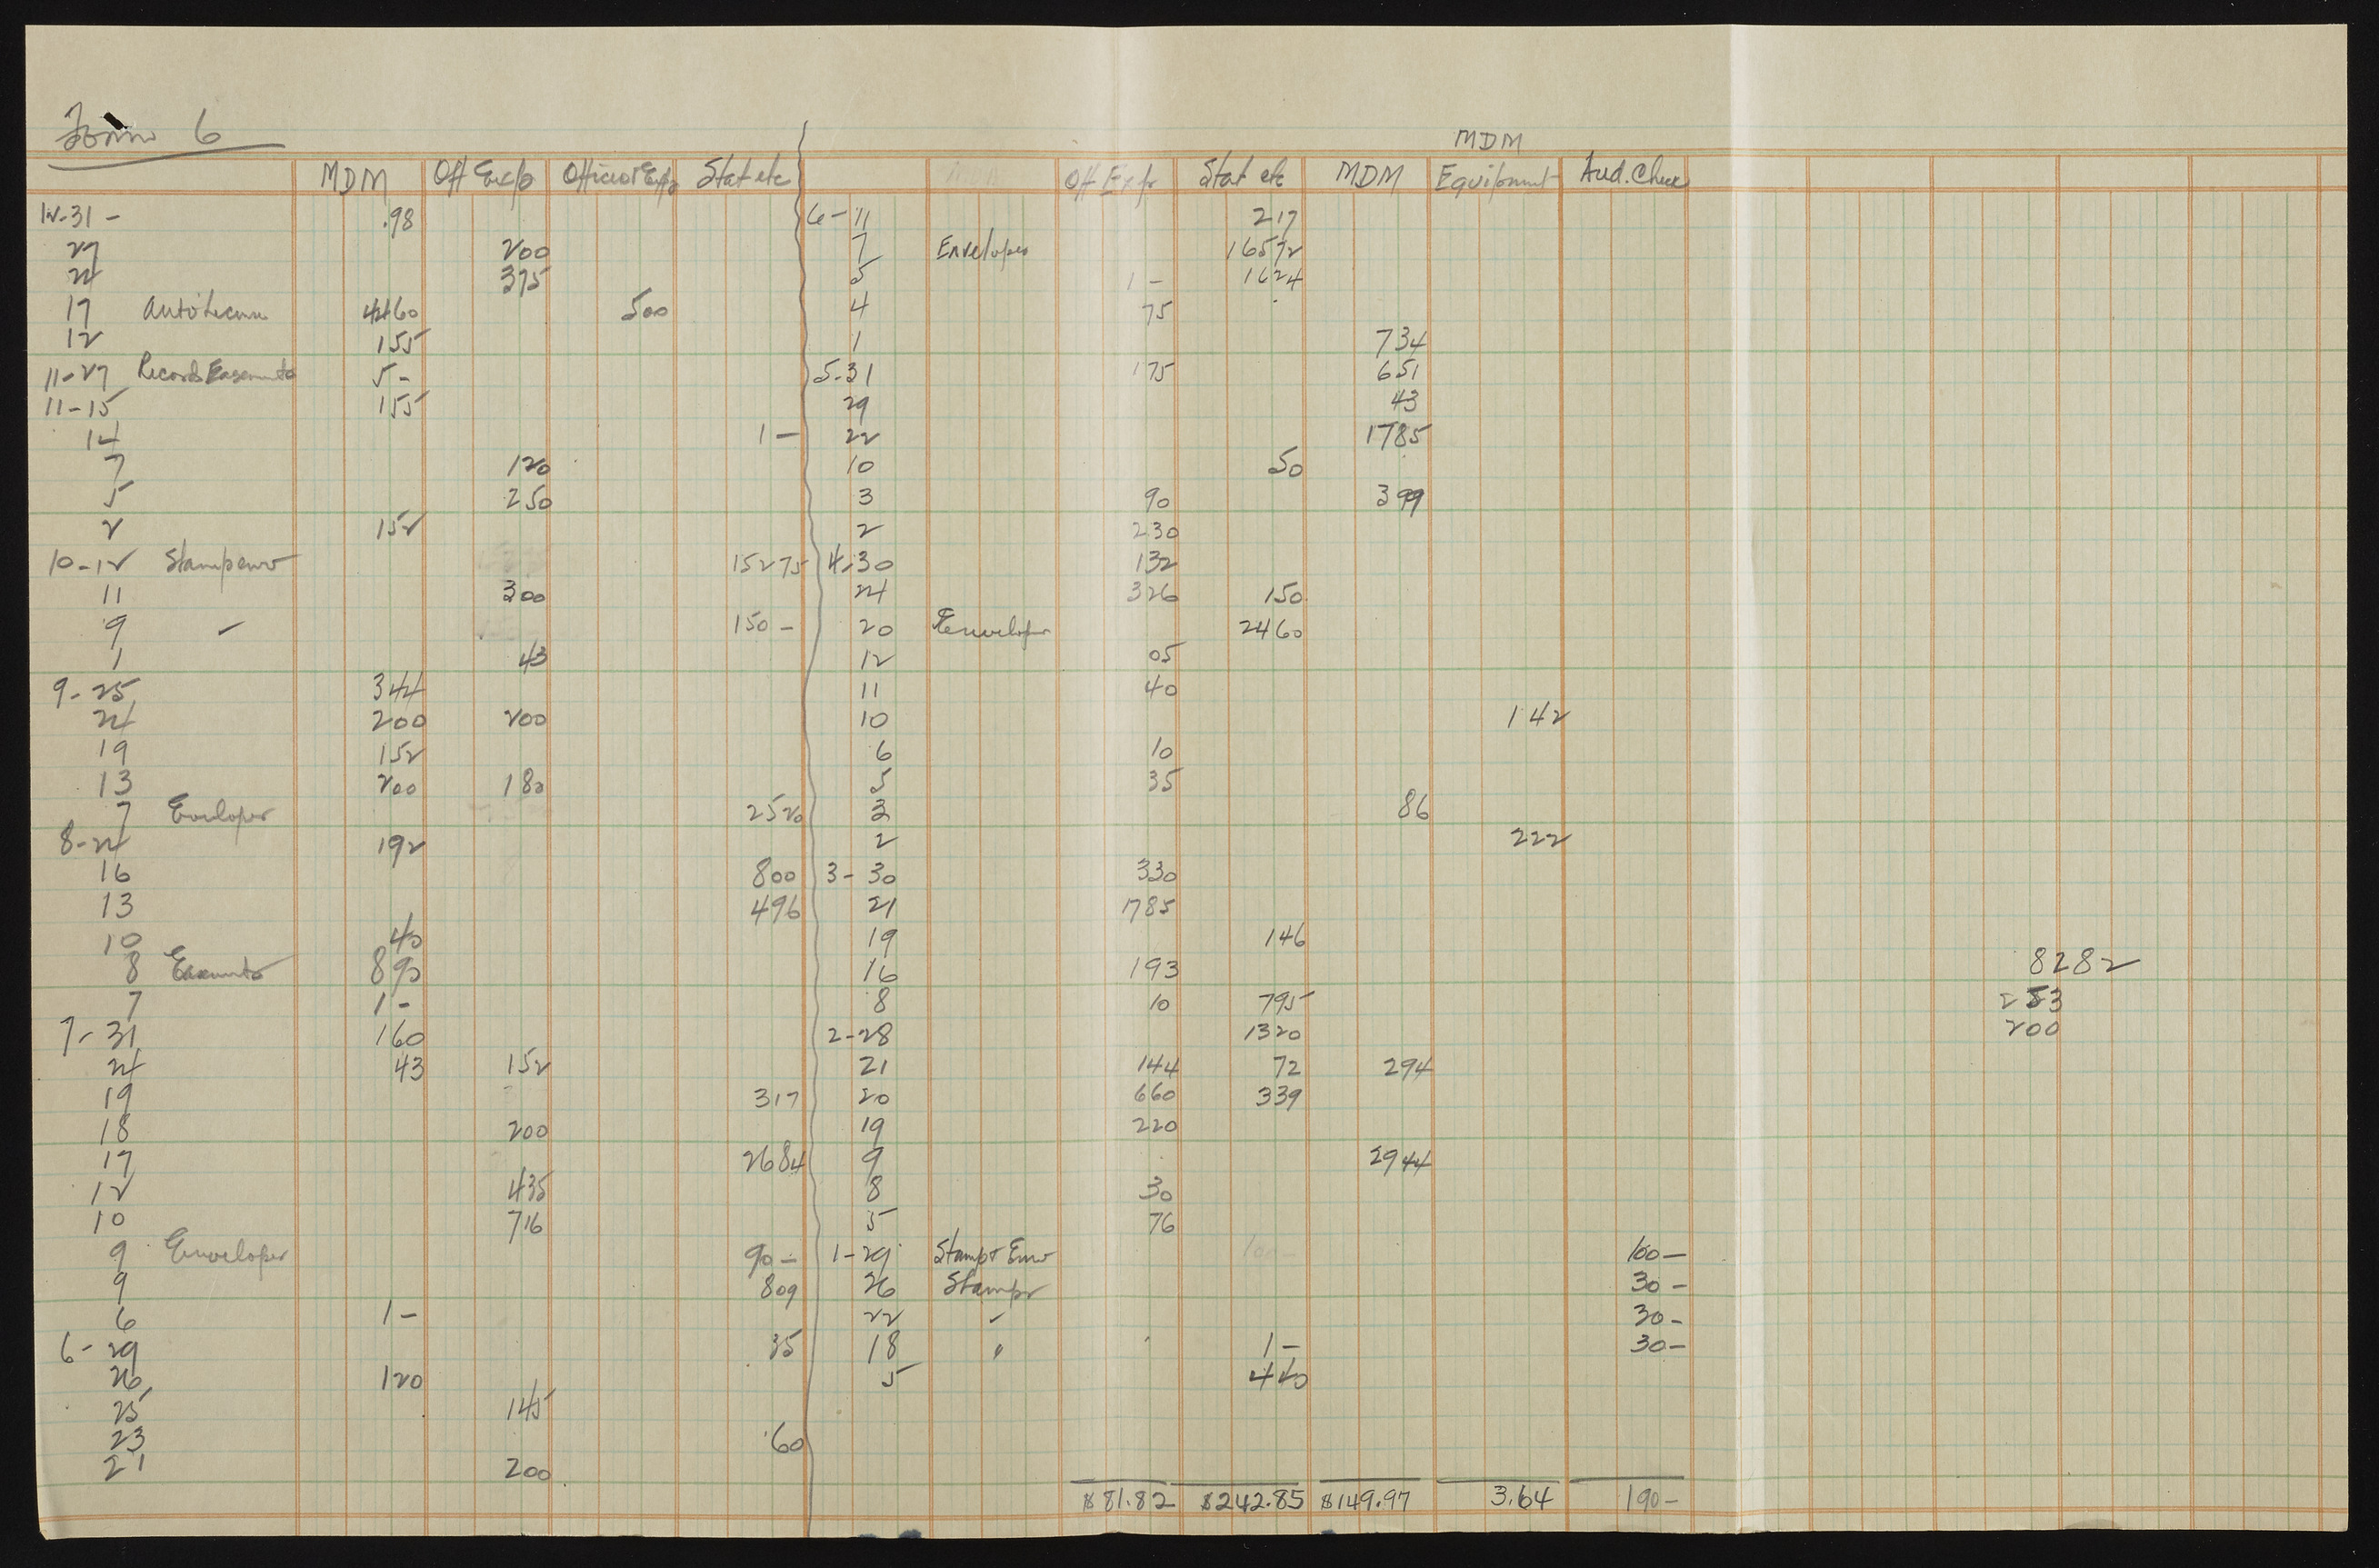 Form 6
MDM
MDM Off Exp Officer Exp Stat etc Off Exp Stat etc MDM Equipment Aud. Check
12-31 - .98 6-11 217
27 200 7 Envelopes 16572
24 375 5 1 - 1624
17 Auto License 4460 500 4 75
12 155 1 734
11-27 Records Easements 5 - 5-31 175 651
11-15 155 29 43
14 1 - 22 1785
7 120 10 50
5 250 3 90 399
2 152 2 230
10-12 Stamp env 15275 4-30 132
11 300 24 326 150
9 " 150 - 20 Envelopes 2460
1 43 12 05
9-25 344 11 40
24 200 200 10 142
19 152 6 10
13 200 180 5 35
7 Envelopes 2520 3 86
8-24 192 2 222
16 800 3-30 330
13 496 21 785
10 40 19 146
8 Easements 890 16 193 8282
7 1 - 8 10 795 253
7-31 160 2-28 1320 200
24 43 152 21 144 72 294
19 317 20 660 339
18 200 19 220
17 2684 9 2944
12 435 8 30
10 716 5 76
9 Envelopes 90 - 1-29 Stamp & Env 100 - 100 -
9 809 26 Stamps 30 -
6 1 - 22 " 30 -
6-29 35 18 " 1 - 30 -
26 120 5 440
25 145
23 .60
21 200
$81.82 $242.85 $149.97 3.64 190 -